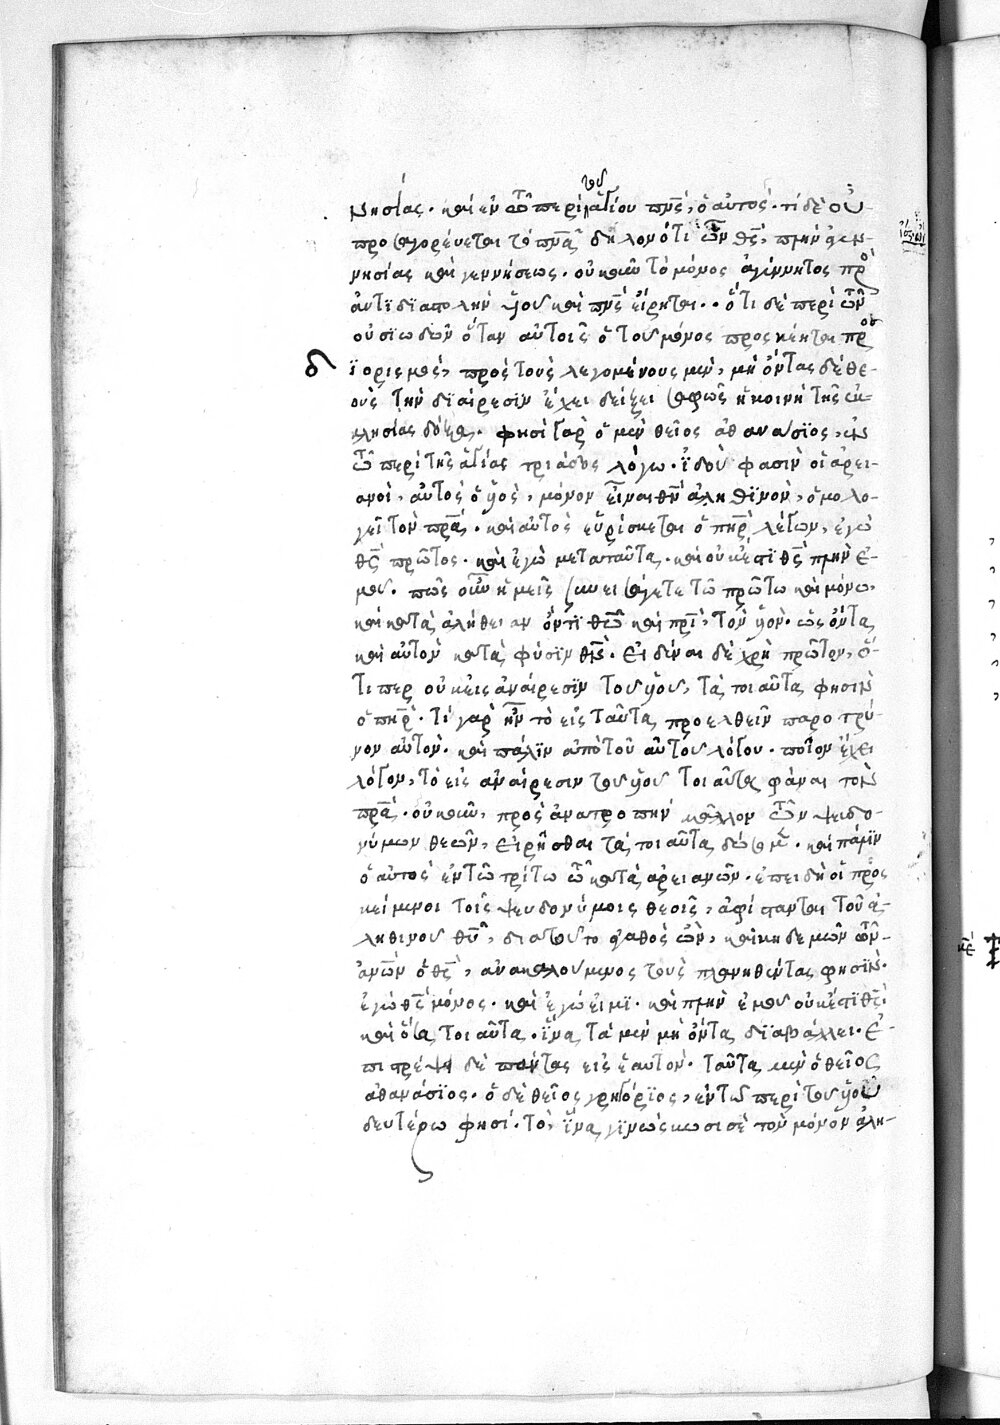 νησίας. καὶ ἐν τῶ περὶ τοῦ ἁγίου πνς, ὁ αὐτός. τί δὲ οὐ
προσαγορεύεται τὸ πνα δηλονότι τῶν θς, πλὴν ἀγεν-
νησίας καὶ γεννήσεως. οὐκοῦν τὸ μόνος ἀγέννητος πηρ
ἀντιδιαστολὴν υου καὶ πνς εἴρηται. ὅτι δὲ περὶ τῶν
οὐσιωδῶν ὅταν αὐτοῖς ὁ τοῦ μόνος προσκέηται προσ
δ ϊορισμὸς, πρὸς τοὺς λεγομένους μὲν, μὴ ὄντας δὲ θε-
οὺς τὴν διαίρεσιν ἔχει δείξει σαφῶς ἡ κοινὴ τῆς ἐκ-
κλησίας δόξα. φησὶ γὰρ ὁ μὲν θεῖος ἀθανάσιος, ἐν
τῶ περὶ τῆς ἁγίας τριάδος λόγω. ἰδοὺ φασὶν οἱ ἀρει-
ανοὶ, αὐτὸς ὁ υς, μόνον εἶναι θν ἀληθινὸν, ὁμολο-
γεῖ τὸν πρα. καὶ αὐτὸς εὑρίσκεται ὁ πηρ λέγων, ἐγὼ
θς πρῶτος. καὶ ἐγὼ μετὰ ταῦτα. καὶ οὐκ ἔστι θς πλὴν ἐ-
μοῦ. πῶς οὖν ἡμεῖς συνεισάγετε τῶ πρώτω καὶ μόνω,
καὶ κατὰ ἀλήθειαν ὄντι θεῶ καὶ πρι, τὸν υον. ὡς ὄντα
καὶ αὐτὸν κατὰ φύσιν θν. εἰδέναι δὲ χρὴ πρῶτον, ὅ-
τι περ οὐκ εἰς ἀναίρεσιν τοῦ υου, τὰ τοιαῦτα φησιν
ὁ πηρ. τί γὰρ ἦν τὸ εἰς ταῦτα προελθεῖν παροτρύ-
νον αὐτόν. καὶ πάλιν ἀπὸ τοῦ αὐτοῦ λόγου. ποῖον ἔχει
λόγον, τὸ εἰς ἀναίρεσιν τοῦ υου τοιαῦτα φάναι τὸν
πρα. οὐκοῦν, πρὸς ἀνατροπὴν μᾶλλον τῶν ψευδο-
νύμων θεῶν, εἰρῆσθαι τὰ τοιαῦτα δώσομεν. καὶ πάλιν
ὁ αὐτὸς ἐν τῶ τρίτω τῶ κατὰ ἀρειανῶν. ἐπειδὴ οἱ προς
κείμενοι τοῖς ψευδονύμοις θεοῖς, ἀφίστανται τοῦ ἀ-
ληθινοῦ θυ, διὰ τοῦτο ἀγαθὸς ὢν, καὶ κηδεμὼν τῶν
ανων ὁ θς, ἀνακαλούμενος τοὺς πλανηθέντας φησίν.
ἐγὼ θς μόνος. καὶ ἐγώ εἰμι. καὶ πλὴν ἐμοῦ οὐκ ἔστι θς
καὶ ὅσα τοιαῦτα. ἵνα τὰ μὲν μὴ ὄντα διαβάλλει. ἐ-
πιστρέψη δὲ πάντας εἰς ἑαυτόν. ταῦτα μὲν ὁ θεῖος
ἀθανάσιος. ὁ δὲ θεῖος γρηγόριος, ἐν τῶ περὶ τοῦ υου
δευτέρω φησί. τὸ, ἵνα γινώσκωσι σὲ τὸν μόνον ἀλη-